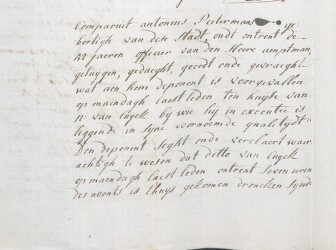 Comparuit antonius Peeterman ge
bortigh van dese stadt, oudt ontrent de
42 jaeren officier van den Heere amptman,
getuygen, gedaeght, geeedt onde gevraeght
wat aen hem deponent is voorgevallen
op maendagh laest leden, ten huyse van
N: van Luyck by wie hy in executie is
leggende in syne voornoemde qualiteydt
Den deponent seght onde verclaert waer
achtigh te wesen dat ditto van Luyck
op maendagh laest leden ontrent seven uren
des avonts is thuys gekomen droncken synde